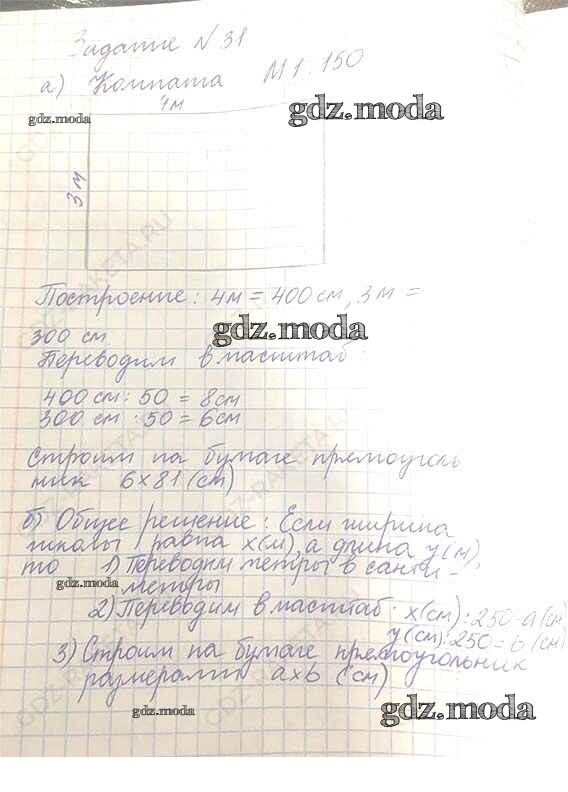 Задание N 31
а) Комната М 1:150
gdz.moda
gdz.moda
4м
3 м
GDZ-RAKETA.RU
Построение: 4м = 400 см, 3м =
300 см
gdz.moda
Переводим в масштаб:
gdz.moda
400 см : 50 = 8 см
300 см : 50 = 6 см
Строим на бумаге прямоуголь
ник 6×81 (см)
б) Общее решение: Если ширина
равна х(м), а длина у(м),
то 1) Переводим метры в санти-
gdz.moda
метры
2) Переводим в масштаб: х(см):250=а(см)
у(см):250=b(см)
3) Строим на бумаге прямоугольник
размерами а×b (см)
gdz.moda
gdz.moda